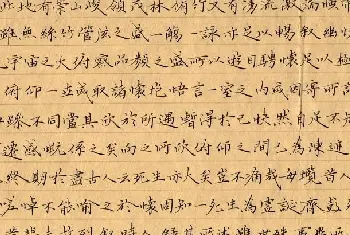 此地有崇山峻領茂林脩竹又有清流激湍映帶
雖無絲竹管弦之盛一觴一詠亦足以暢敘幽
宇宙之大俯察品類之盛所以遊目騁懷足以極
俯仰一世或取諸懷抱悟言一室之內或因寄所
躁不同當其欣於所遇暫得於己快然自足不
遷感慨係之矣向之所欣俯仰之間已為陳迹
終期於盡古人云死生亦大矣豈不痛哉每攬昔人
嗟悼不能喻之於懷固知一死生為虛誕齊彭
列敘時人錄其所述雖世殊事異